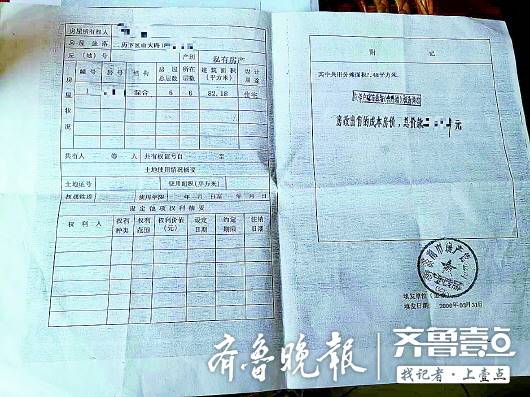 房屋所有权人
房屋坐落 历下区山大路
丘（地）号 产别 私有房产
幢号 房号 结构 房屋总层数 所在层数 建筑面积（平方米） 设计用途
综合 6 6 82.18 住宅
房屋状况
共有人 等 人 共有权证号自 至
土地使用情况摘要
土地证号 使用面积（平方米）
权属性质 使用年限 年 月 日至 年 月 日
设定他项权利摘要
权利人 权利种类 权利范围 权利价值（元） 设定日期 约定期限 注销日期
附 记
其中共用分摊面积7.48平方米。
房改出售的成本房价，总价款 元
填发单位
填发日期
齐鲁晚报
齐鲁壹点
找记者·上壹点